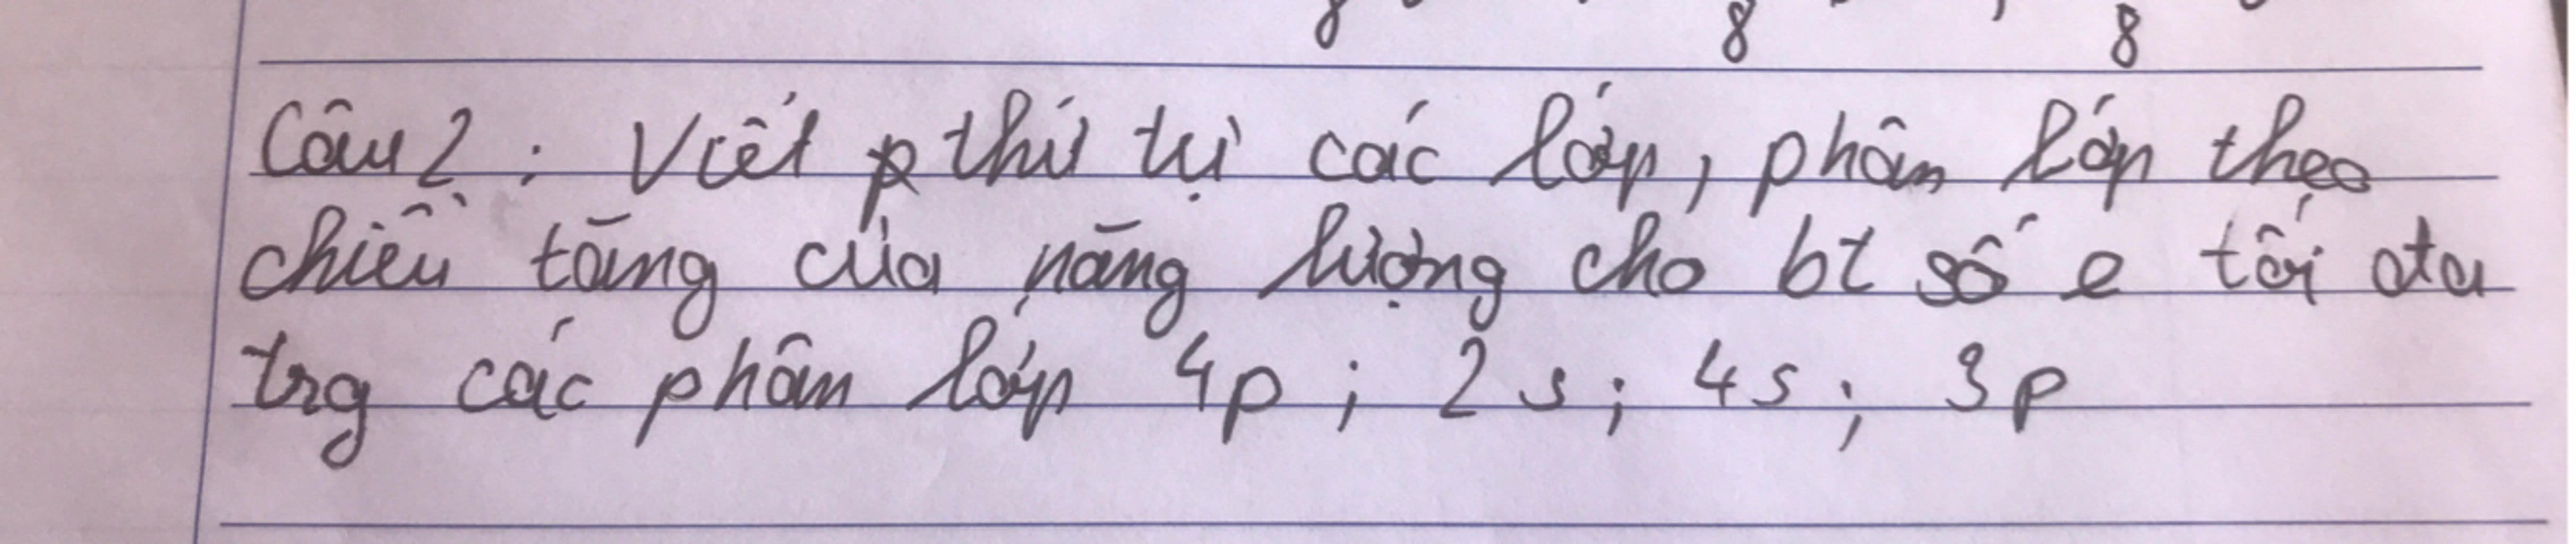 8 8 8
Câu 2 : Viết thứ tự các lớp, phân lớp theo
chiều tăng của năng lượng cho bt số e tối đa
trg các phân lớp 4p ; 2s ; 4s ; 3p